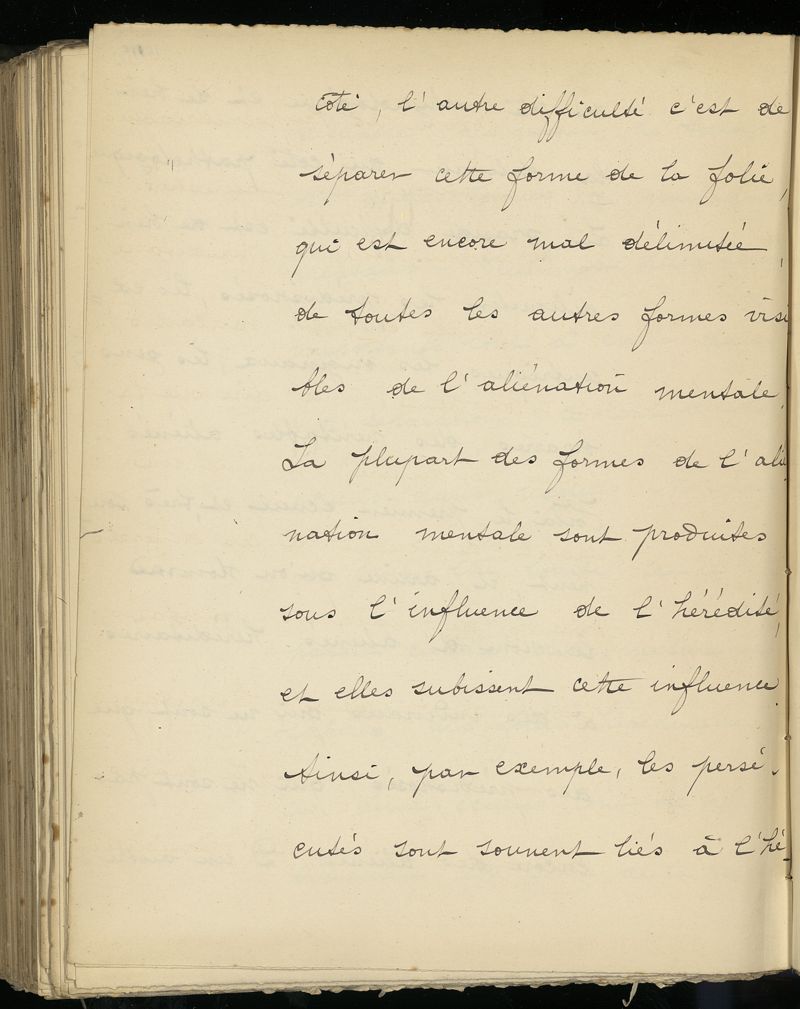 coté, l'autre difficulté c'est de
séparer cette forme de la folie,
qui est encore mal délimitée,
de toutes les autres formes visi
bles de l'aliénation mentale.
La plupart des formes de l'alié
nation mentale sont produites
sous l'influence de l'hérédité,
et elles subissent cette influence.
Ainsi, par exemple, les persé-
cutés sont souvent liés à l'hé-